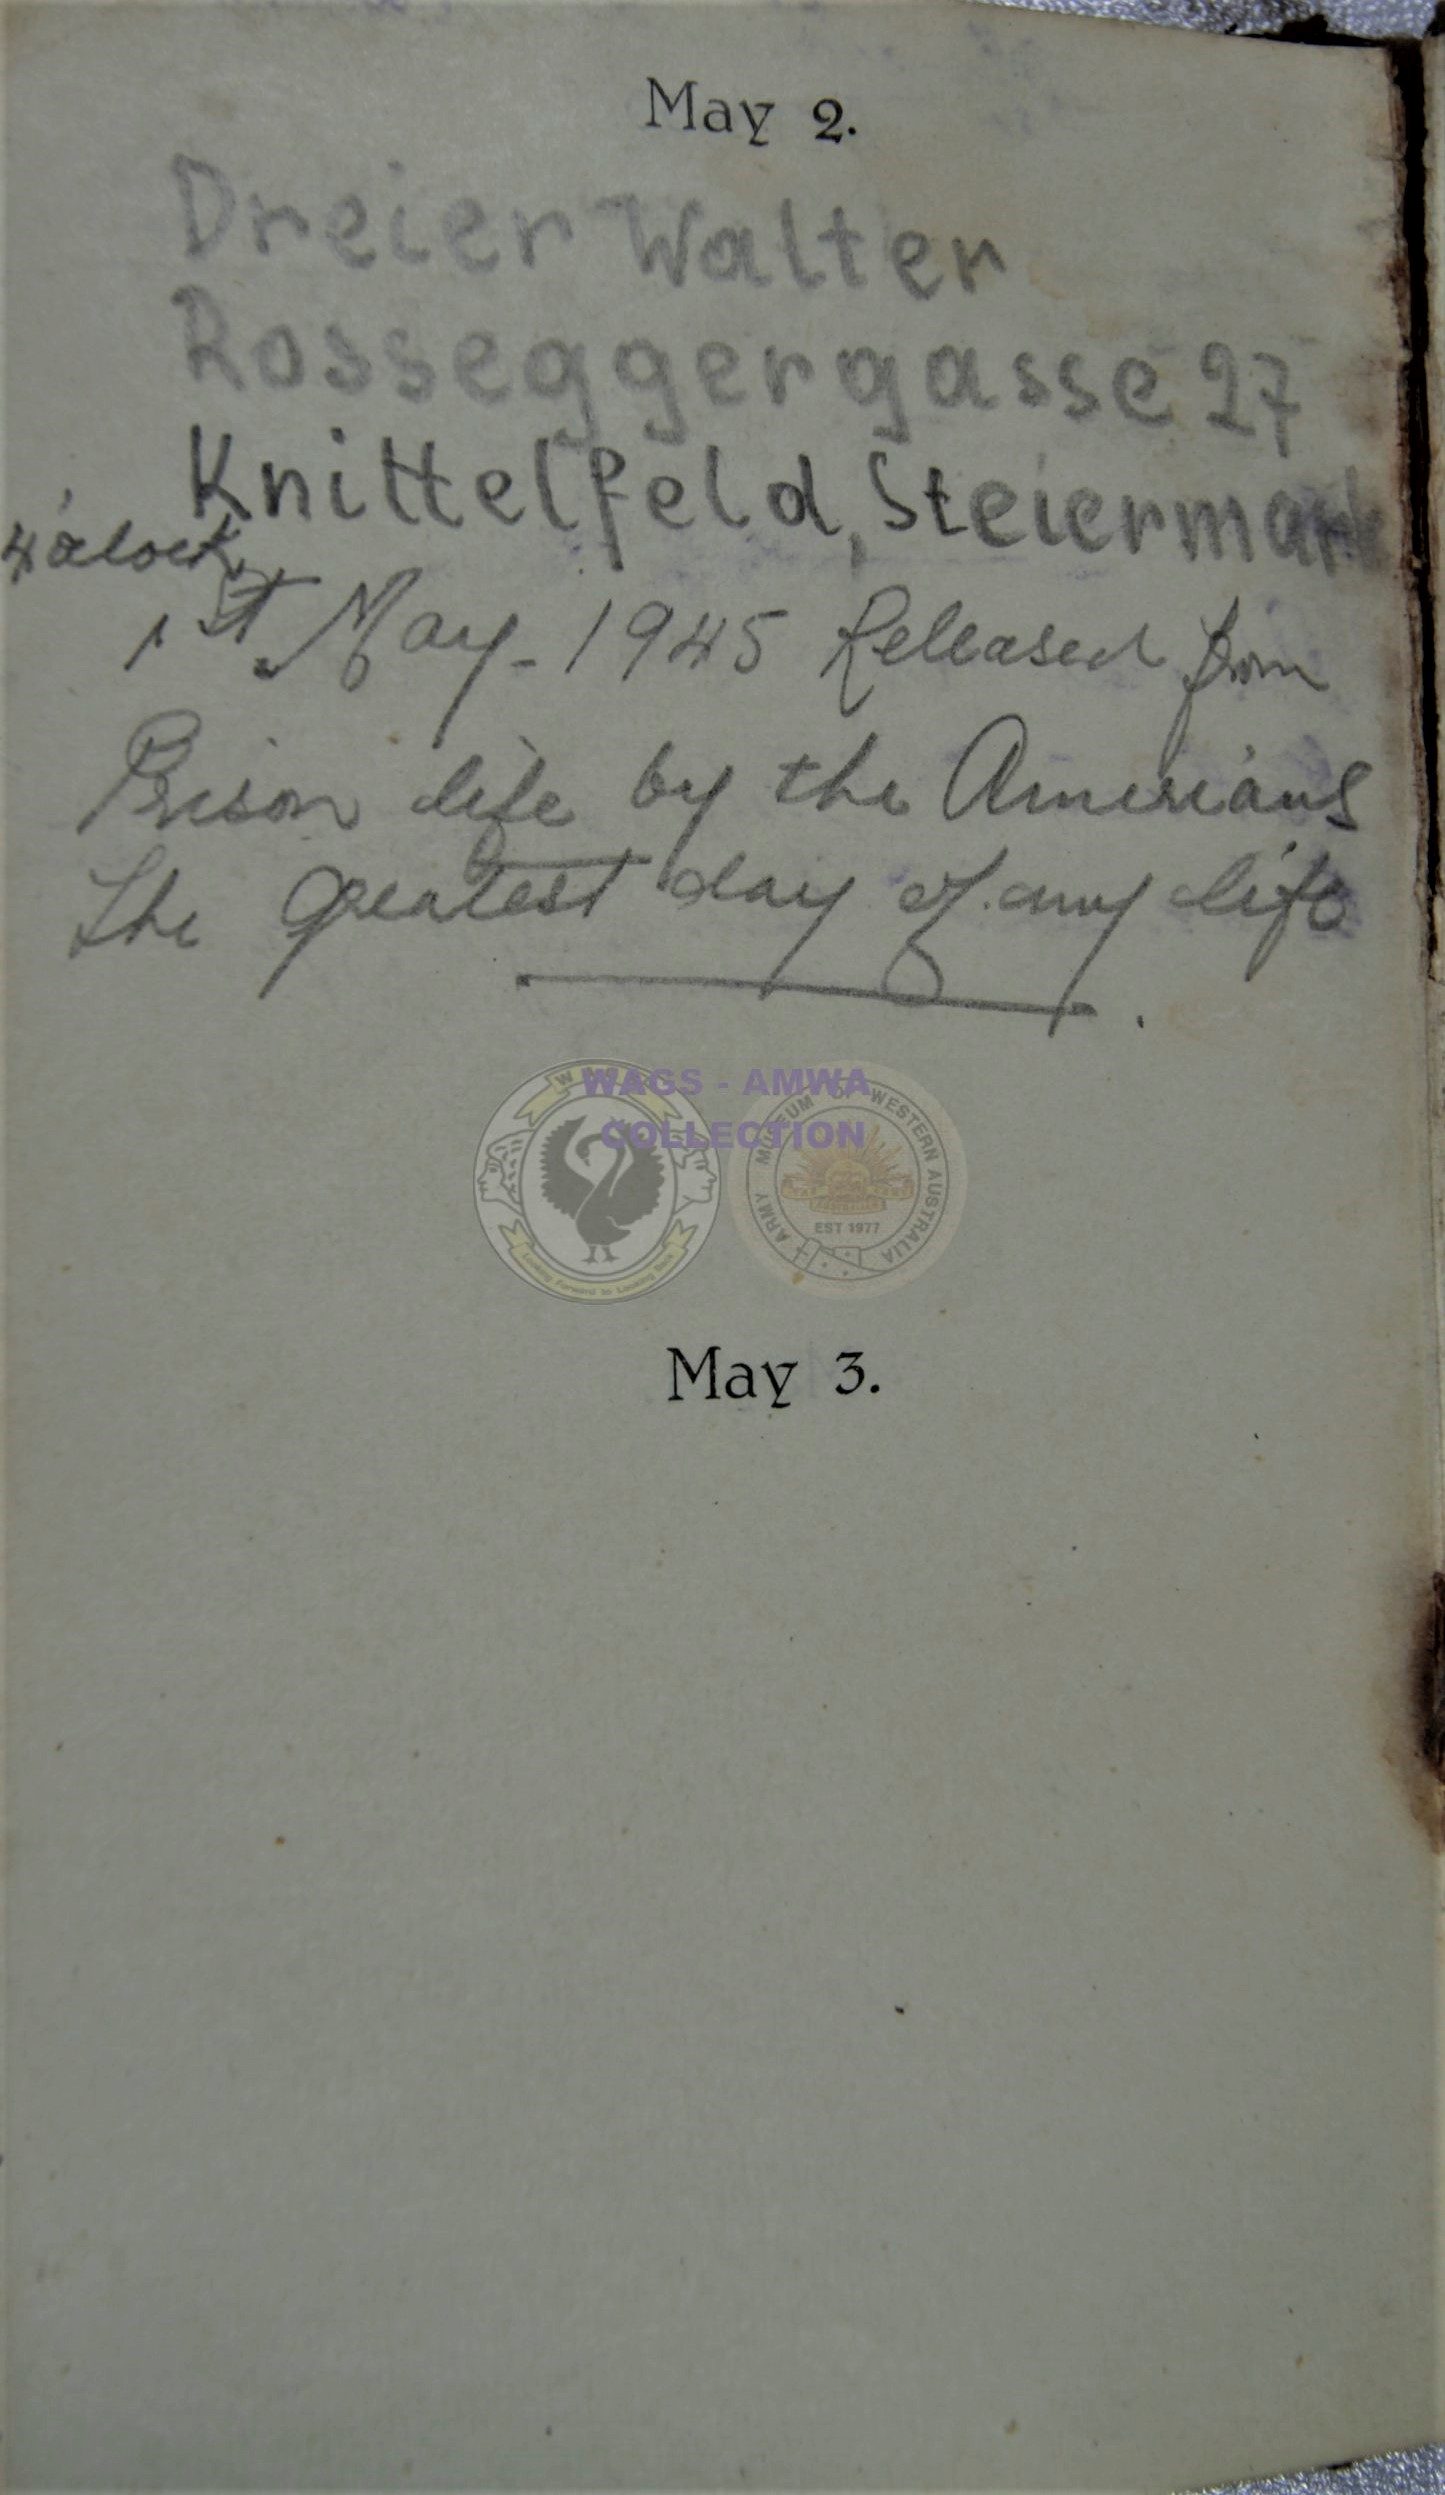 May 2.
Dreier Walter
Rosseggergasse 27
Knittelfeld, Steiermark
4 o'clock
1st May - 1945 Released from
Prison life by the Amerians
The Greatest day of my life
WAGS - AMWA
COLLECTION
WAGS
ARMY MUSEUM OF WESTERN AUSTRALIA
AUSTRALIAN
EST 1977
Looking Forward to Looking Back
May 3.